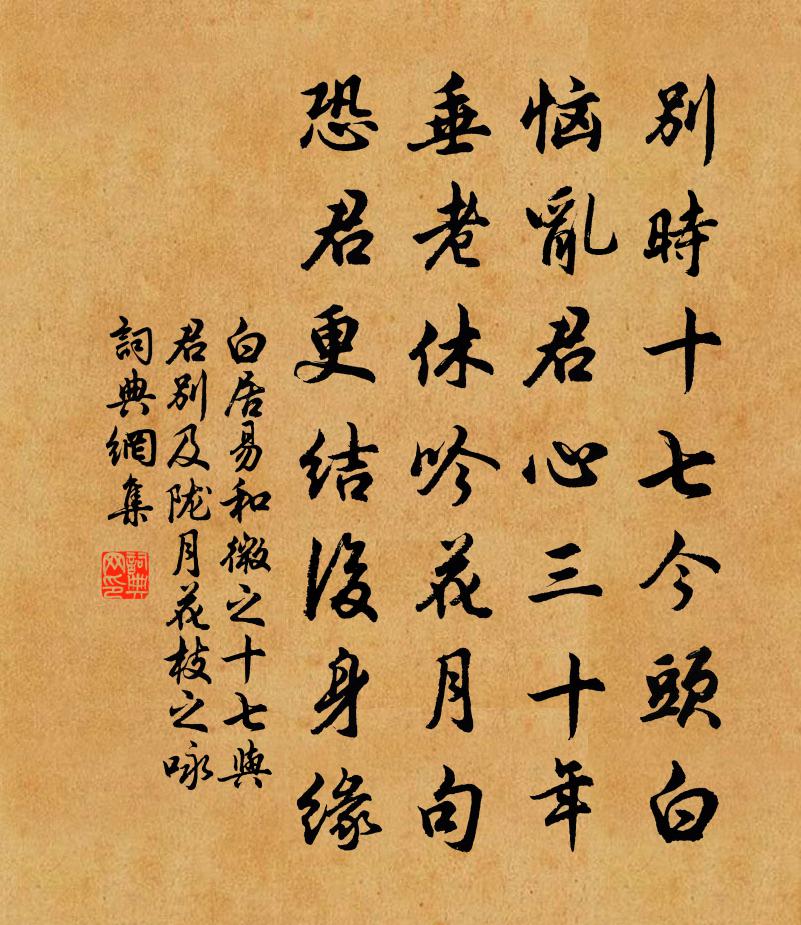 別時十七今頭白
恼亂君心三十年
垂老休吟花月句
恐君更结後身緣
白居易和微之十七與
君别及陇月花枝之咏
詞典網集
詞典网印